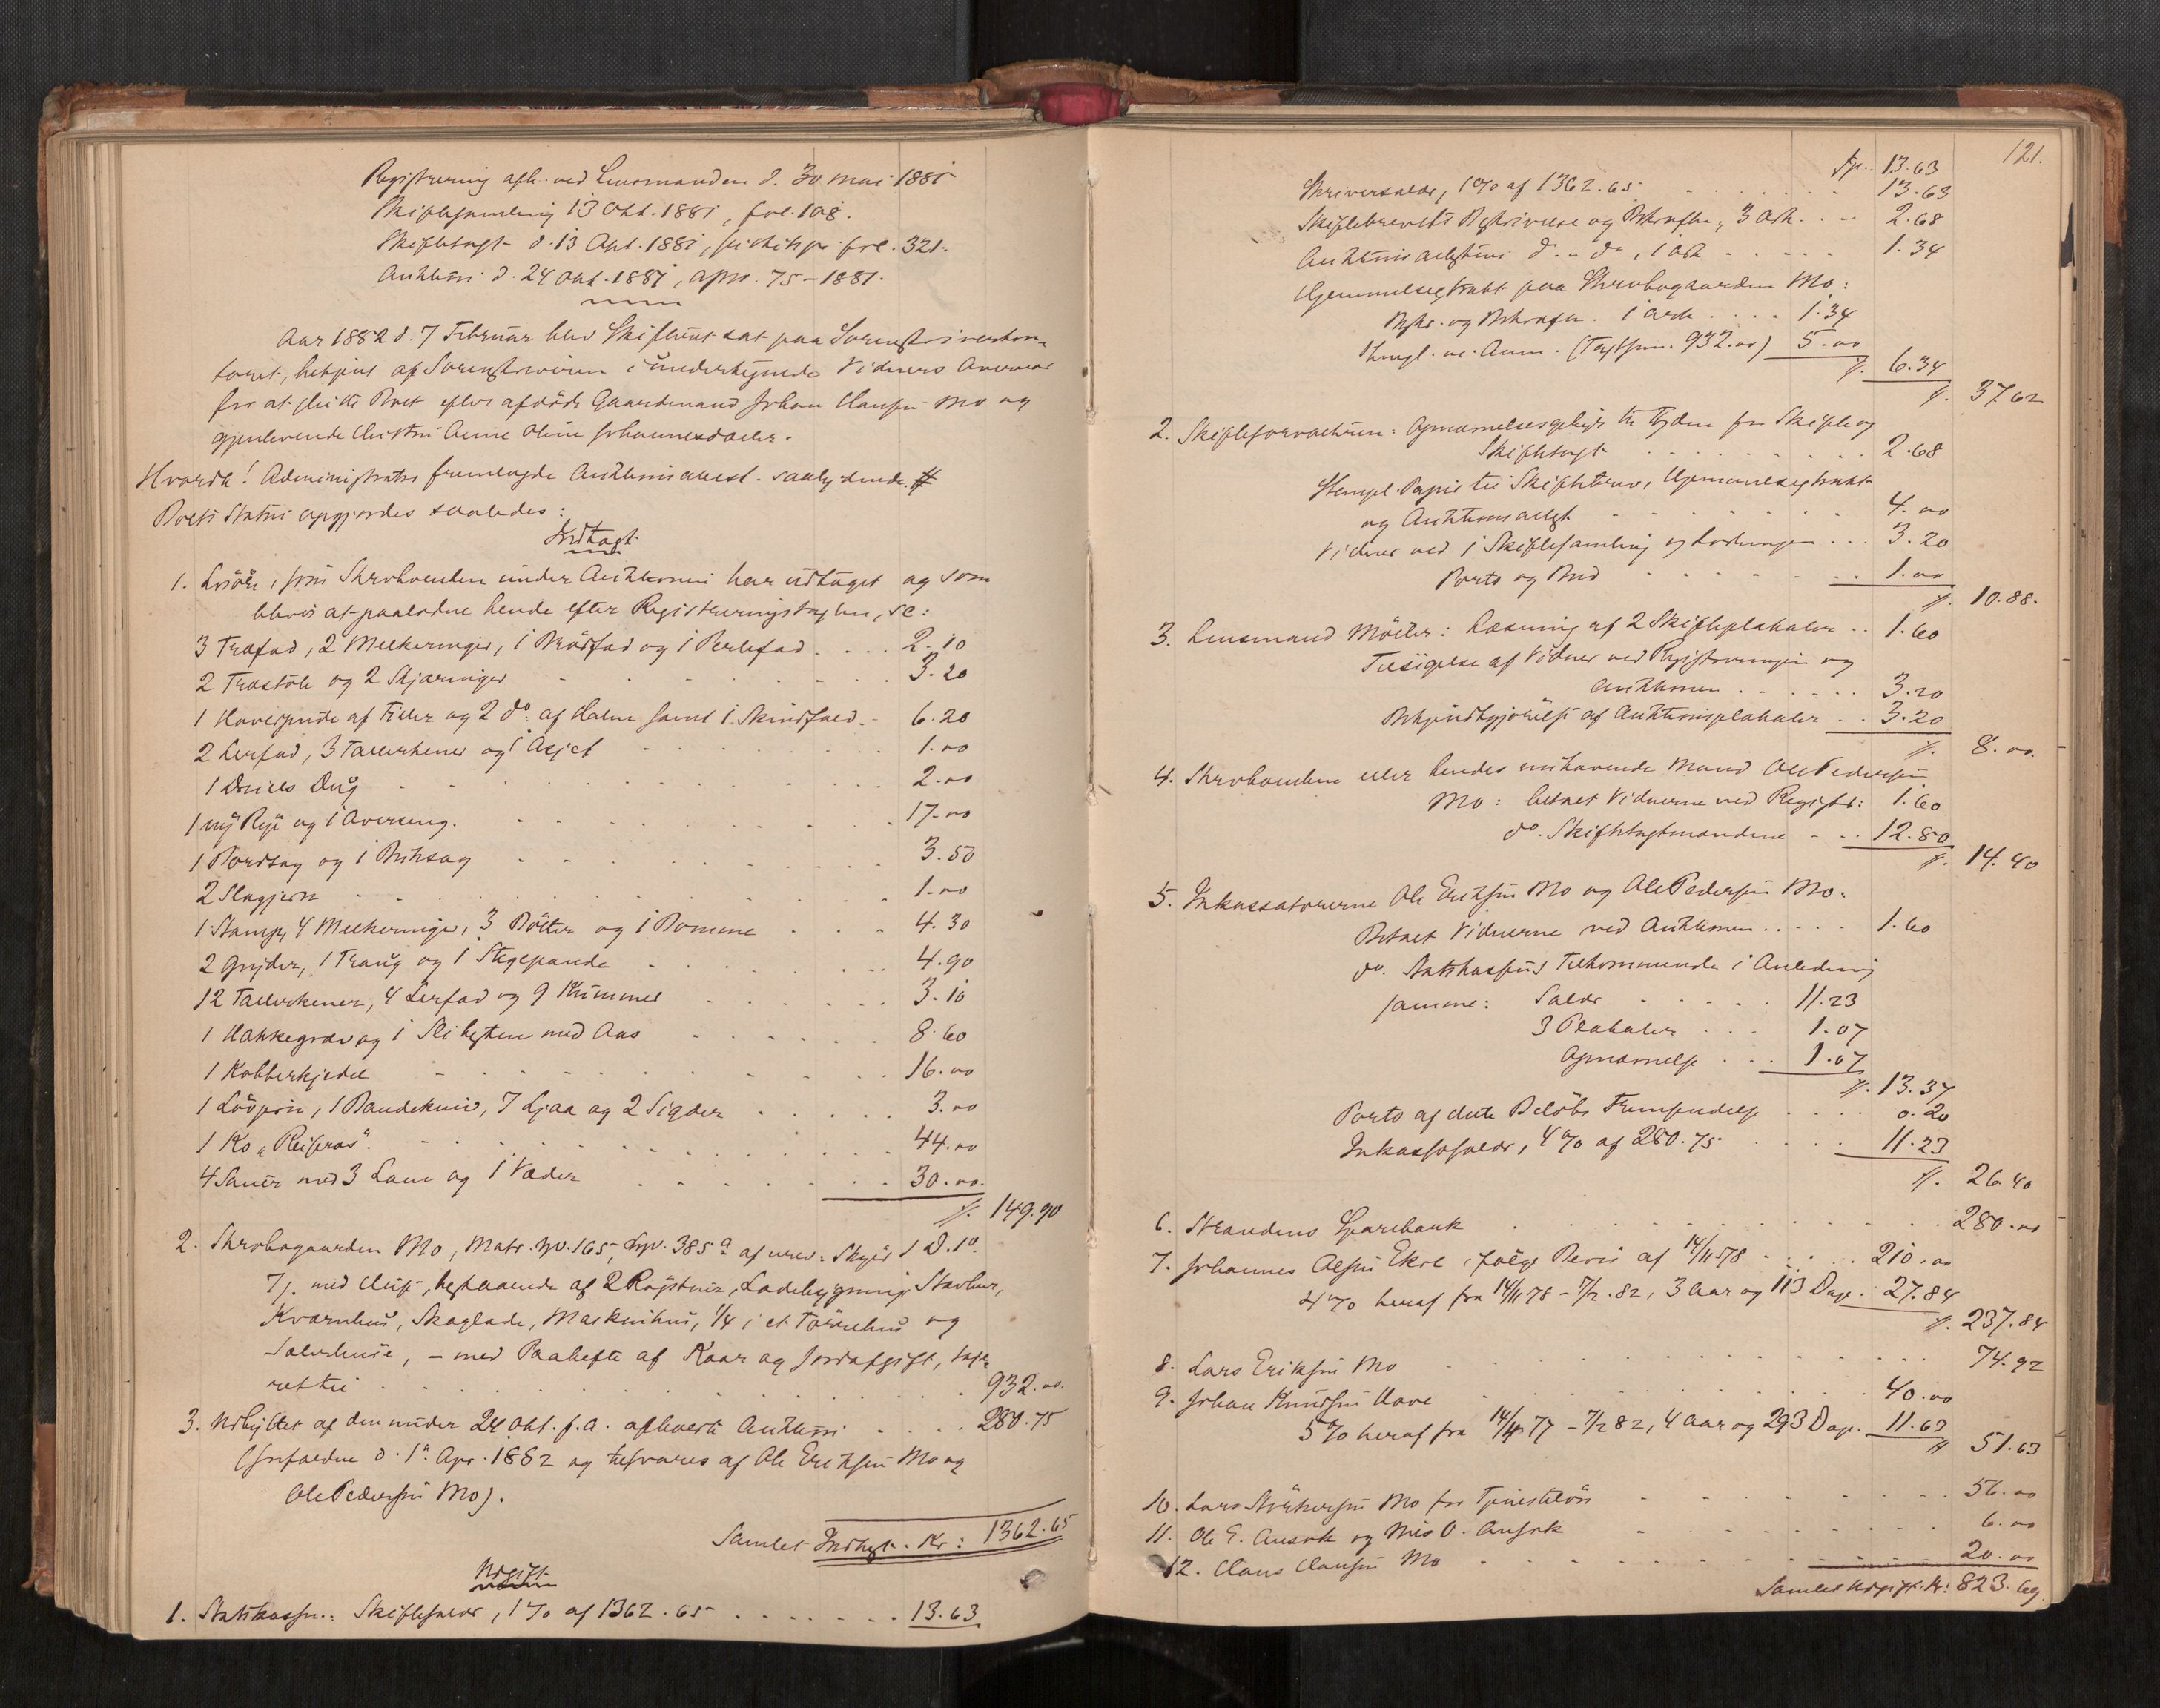 Registrering afh. ved Lensmanden d. 30 Mai 1881
Skiftesamling 13 Okt. 1881, fol. 108.
Skiftetagt d. 13 Apl. 1881, fol. 321.
Auktion d. 24 Okt. 1881, 75-1881.
Aar 1882 d. 7 Februar blev Skifteret sat paa Sorenskriverkon-
toret, betjent af Sorenskriveren i undertegnede Vidners Overvær
for at slutte Boet efter afdøde Gaardmand Johan Hansen Mo og
gjenlevende Enke Anne Oline Johannesdatter.
Hvorda! Administrator fremlagde Auktions saalydende #
Boets Status opgjordes saaledes:
Indtægt
1. Løsöre, som Skrobenken under Auktionen har udtaget og som
blevet paalydne hende efter Registreringstaxten, sc:
3 Træfad, 2 Melkeringer, 1 Brödfad og 1 . . . . 2.10
2 Træstole og 2 . . . 3.20
1 Hovedpude af Fieler og 2 do. af Halm samt 1 Skindfæld . - 6.20
2 Lerfad, 3 Tallerkener og 1 Asjet . . . 1.00
1 Dreiels Dug . . . 2.00
1 ny Rye og 1 Overseng. . . . 17.00
1 Bordsag og 1 Buksag . . . 3.50
2 Slagjern . . . 1.00
1 Stamp, 4 Melkeringer, 3 Bötter og 1 Bomme . . . 4.30
2 Gryder, 1 Traug og 1 Stegepande . . . 4.90
12 Tallerkener, 4 Lerfad og 9 Kummer . . . 3.10
1 Hakkegrev og 1 Slibesten med Aas . . . 8.60
1 Kobberkjedel . . . 16.00
1 Lövjern, 1 Baandekniv, 7 Ljaa og 2 Sigder . . . 3.00
1 Ko "Reisros". . . . 44.00
4 Sauer med 3 Lam og 1 Væder . . . 30.00.
149.90
2. Skrobogaarden Mo, Matr. No. 165, Lpn. 385 a af urev. Skyld 1 D. 1 O.
7 s. med Huse, bestaaende af 2 Röstuer, Ladebygning, Stavbur,
Kvernhus, Skaglade, Maskinhus, 1/4 i et Törrehus og
, - med Paahefte af Kaar og Jordafgift, tagt
rettil . . . 932.00.
3. Udbyttet af den under 24 Okt. f.a. afholdte Auktion . . . . 280.75
(forfalden d. 1ste Apr. 1882 og tilsvares af Ole Eriksen Mo og
Ole Pedersen Mo).
Samlet Indtægt. Kr: 1362.65
Udgift
1. Statskassen: Skiftesalær, 1% af 1362.65 . . . 13.63
121.
Tp. 13.63
Skriversalær, 1% af 1362.65 . . . 13.63
Skiftebrevets Beskrivelse og Bekræften, 3 Ark . . . 2.68
do. do., 1 Ark . . . 1.34
Hjemmelsextrakt paa Skrobogaarden Mo:
Beskr. og Bekræfn. 1 Ark . . . . 1.34
Thingl. m. Anm. (Taxtsum. 932.00) 5.00
6.34
37.62
2. Skifteforvalteren: Opnævnelsesgebyr til Fogden for Skifte og
Skiftetagt . . . 2.68
Stempl. Papir til Skiftebrev, Hjemmelsextrakt
og Auktions . . . 4.00
Vidner ved 1 Skiftesamling og Lodningen . . . 3.20
Porto og Bud . . . 1.00
10.88.
3. Lensmand Möller: Læsning af 2 Skifteplakater . . 1.60
Tilsigelse af Vidner ved Registreringen og
Auktionen . . . 3.20
Bekjendtgjörelse af Auktionsplakater . . 3.20
8.00.
4. Skrobenken eller hendes nuhavende Mand Ole Pedersen
Mo: betalt Vidnerne ved Registr: 1.60
do. Skiftetagtmændene . . . 12.80
14.40
5. Inkassatorerne Ole Eriksen Mo og Ole Pedersen Mo:
Betalt Vidnerne ved Auktionen . . . . 1.60
do. Statskassens Tilkommende i Anledning
samme: Salær . . . 11.23
3 Plakater . . . 1.07
Opnævnelse . . . 1.07
13.37
Porto af dette Belöbs Fremsendelse . . . 0.20
Inkassosalær, 4% af 280.75 . . . 11.23
26.40
6. Strandens Sparebank . . . 280.00
7. Johannes Olsen Ekre ifölge Bevis af 14/11 1878 . . . 210.00
4% heraf fra 14/11 78 - 7/2.82, 3 Aar og 113 Dage . 27.84
237.84
8. Lars Eriksen Mo . . . 74.92
9. Johan Knudsen Hove . . . 40.00
5% heraf fra 14/4.77 - 7/2 82, 4 Aar og 293 Dage. 11.63
51.63
10. Lars Störkersen Mo for Tjenestelön . . . 56.00
11. Ole E. Ansok og Nils O. Ansok . . . 6.00
12. Claus Clausen Mo . . . 20.00
Samlet Udgift. Kr: 823.69